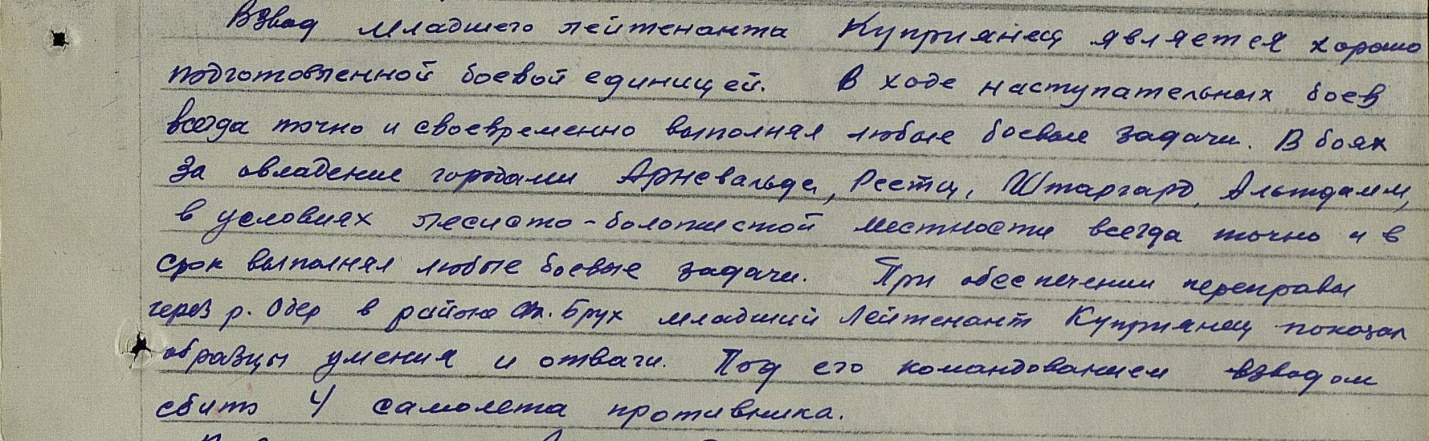 Взвод младшего лейтенанта Куприянец является хорошо
подготовленной боевой единицей. В ходе наступательных боев
всегда точно и своевременно выполнял любые боевые задачи. В боях
за овладение городами Арневальде, Реетц, Штаргард, Альтдамм,
в условиях лесисто-болотистой местности всегда точно и в
срок выполнял любые боевые задачи. При обеспечении переправы
через р. Одер в районе Брух младший лейтенант Куприянец показал
образцы умения и отваги. Под его командованием взводом
сбито 4 самолета противника.